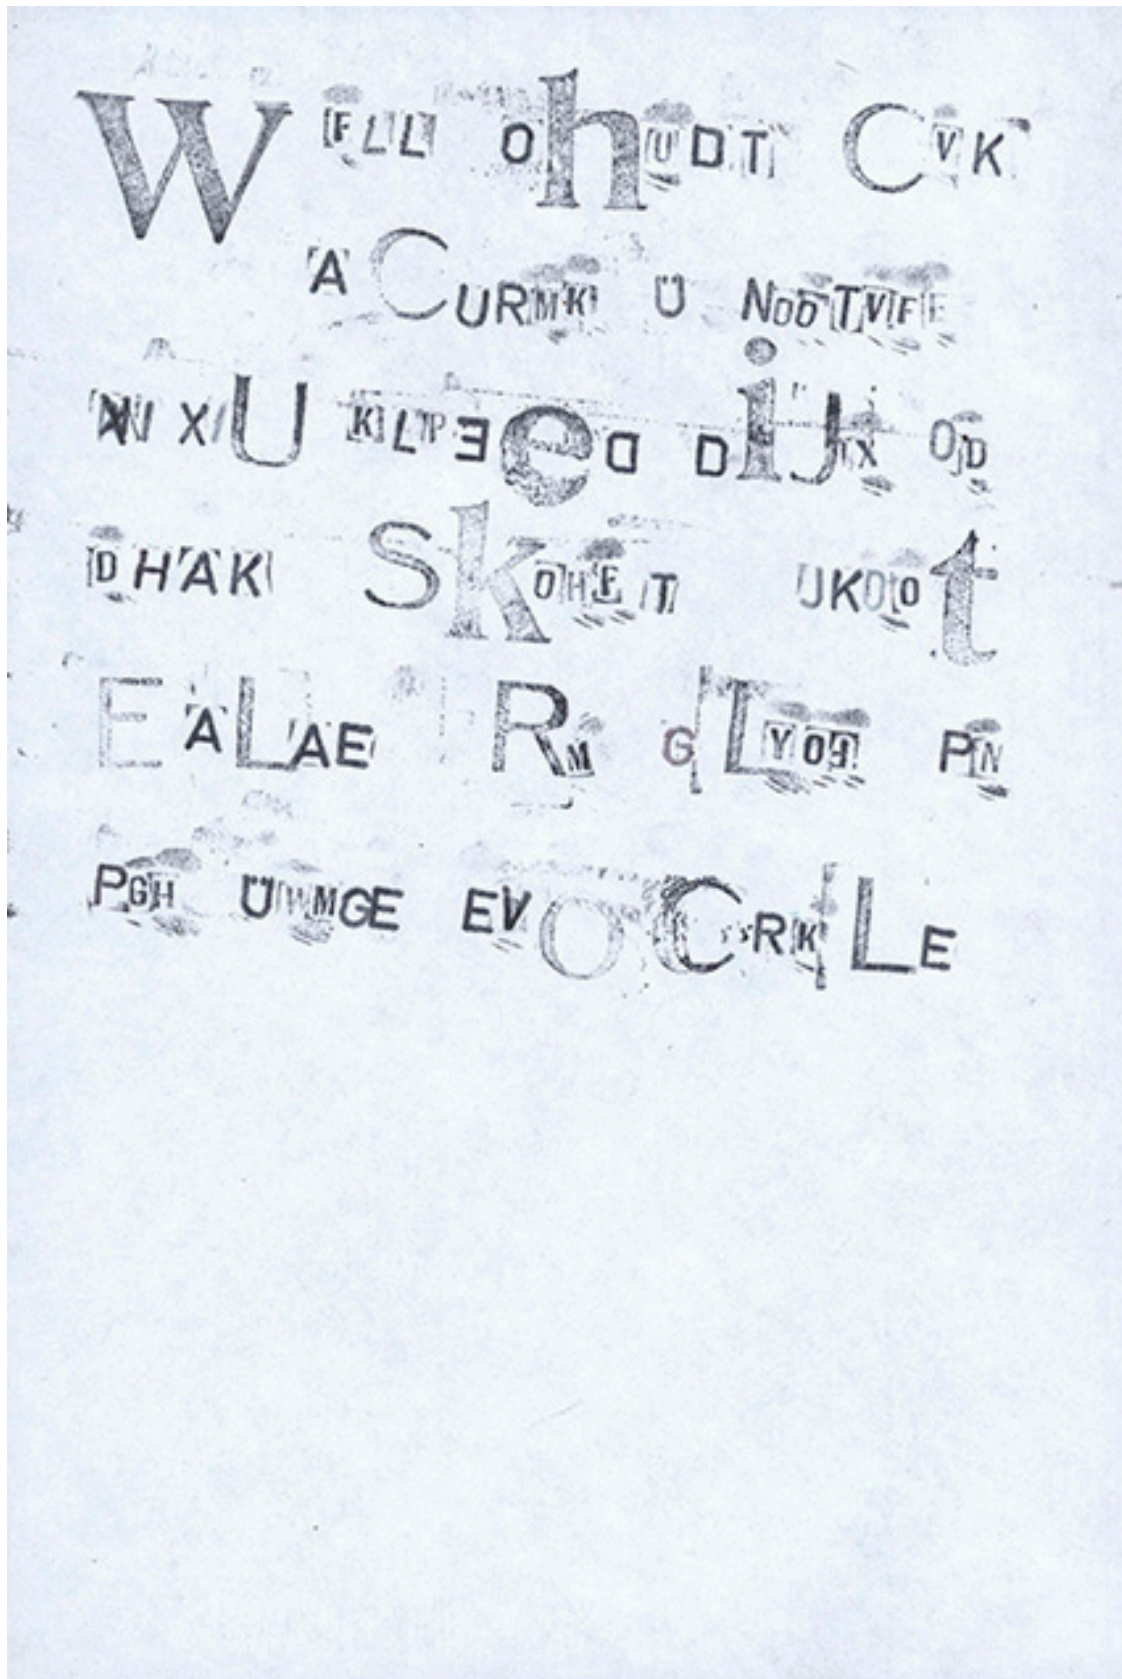 WELL OhUDT CVK
A CURMK Ü NOOTVFE
XIU KLPEeD DiJX OJD
DHAK SkOHFT UKOOt
EALAE RM GLYOG PN
PGH ÜWMGE EVOCRKLE